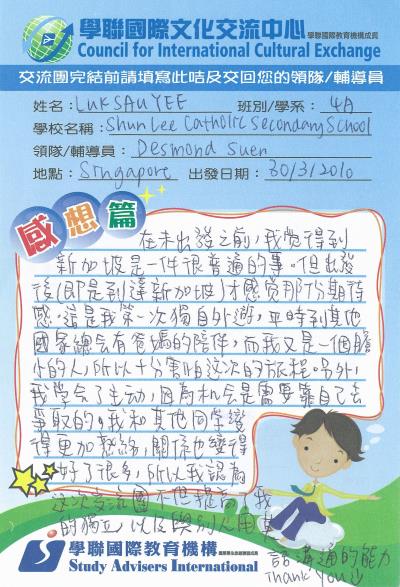 學聯國際文化交流中心 學聯國際教育機構成員
Council for International Cultural Exchange
交流團完結前請填寫此咭及交回您的領隊/輔導員
姓名:LUK SAU YEE 班別/學系: 4A
學校名稱:Shun Lee Catholic Secondary School
領隊/輔導員: Desmond Suen
地點: Singapore 出發日期: 30/3/2010
感想篇
在未出發之前,我覺得到
新加坡是一件很普通的事。但出發
後(即是到達新加坡)才感覺那份期待
感。這是我第一次獨自外遊,平時到其他
國家總會有爸媽的陪伴,而我又是一個膽
小的人,所以十分害怕這次的旅程。另外,
我學會了主動,因為機會是需要靠自己去
爭取的,我和其他同學變
得更加熟絡,關係也變得
好了很多,所以我認為
這次交流團不但提高了我
的獨立以及與別人用英
語溝通的能力
Thank You!!
學聯國際教育機構
Study Advisers International